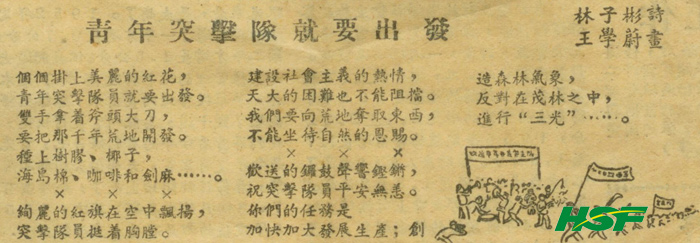 青年突擊隊就要出發
林子彬詩
王學蔚畫
個個掛上美麗的紅花，
青年突擊隊員就要出發。
雙手拿着斧頭大刀，
要把那千年荒地開發。
種上樹膠、椰子，
海島棉、咖啡和劍麻……。
× × ×
絢麗的紅旗在空中飄揚，
突擊隊員挺着胸膛。
建設社會主義的熱情，
天大的困難也不能阻擋。
我們要向荒地奪取東西，
不能坐待自然的恩賜。
× × ×
歡送的鑼鼓聲響鏗鏘，
祝突擊隊員平安無恙。
你們的任務是
加快加大發展生產；創
造森林氣象，
反對在茂林之中，
進行“三光”……。
HSF